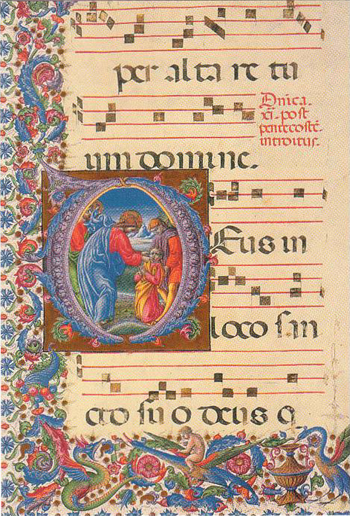 per al ta re tu
Dnica.
xi. post
pentecostē.
introitus.
um domine.
DEus in
loco san
cto su o deus q